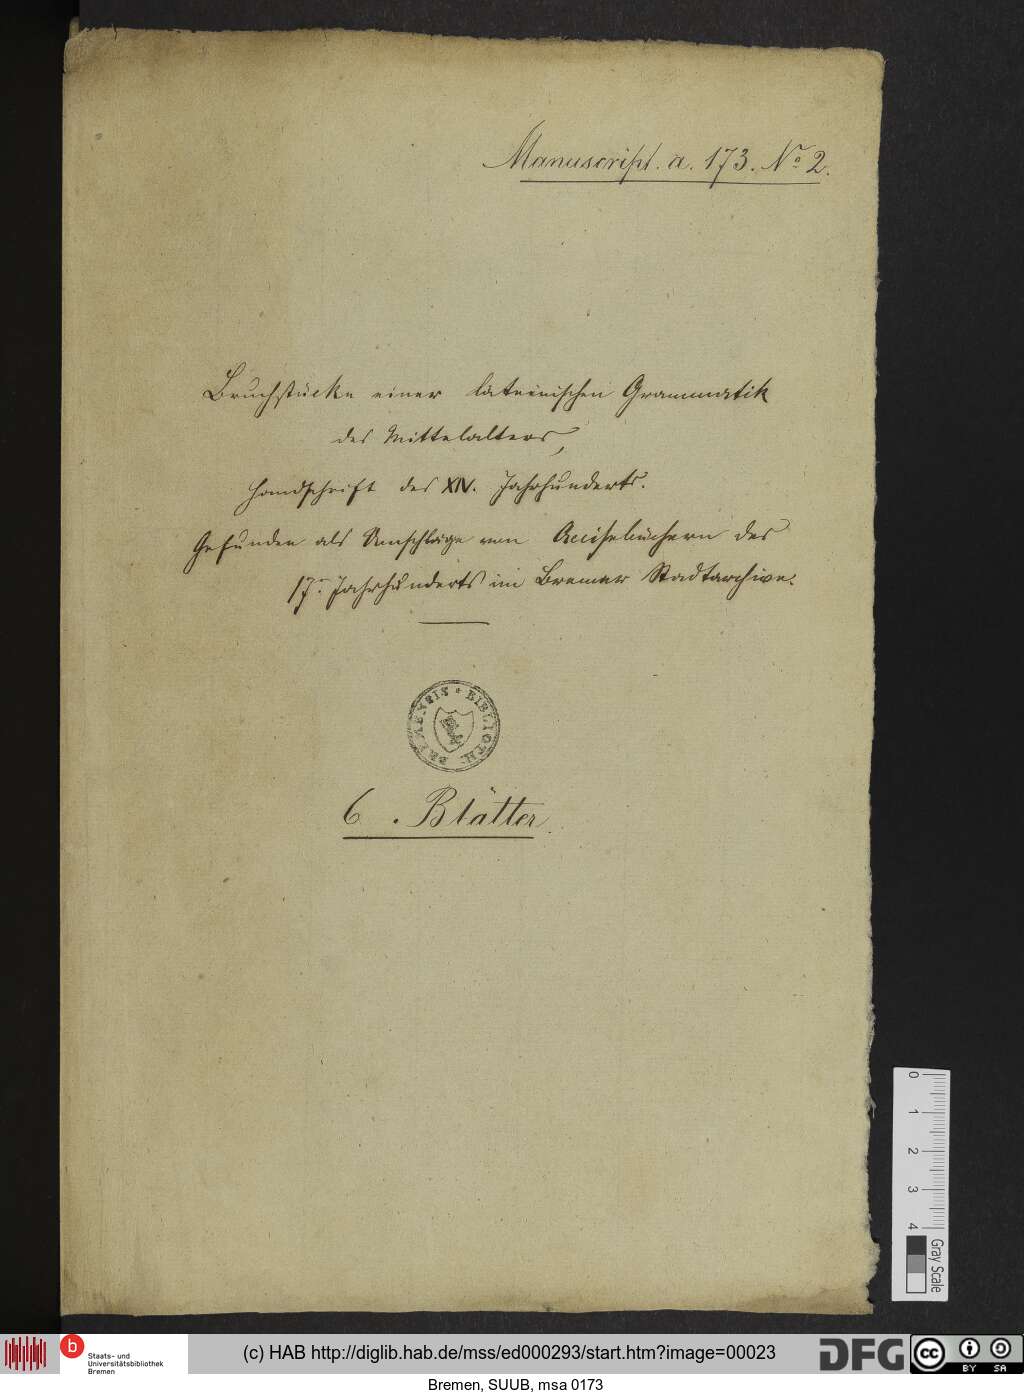 Manuscript. a. 173. No 2.
Bruchstücke einer lateinischen Grammatik
des Mittelalters,
Handschrift des XIV. Jahrhunderts.
Gefunden als Umschläge von Accisebüchern des
17n. Jahrhunderts im Bremer Stadtarchive.
BREMENSIS * BIBLIOTH:
6 . Blätter.
0
1
2
3
4
Gray Scale
b
Staats- und
Universitätsbibliothek
Bremen
(c) HAB http://diglib.hab.de/mss/ed000293/start.htm?image=00023
DFG
cc
BY SA
Bremen, SUUB, msa 0173